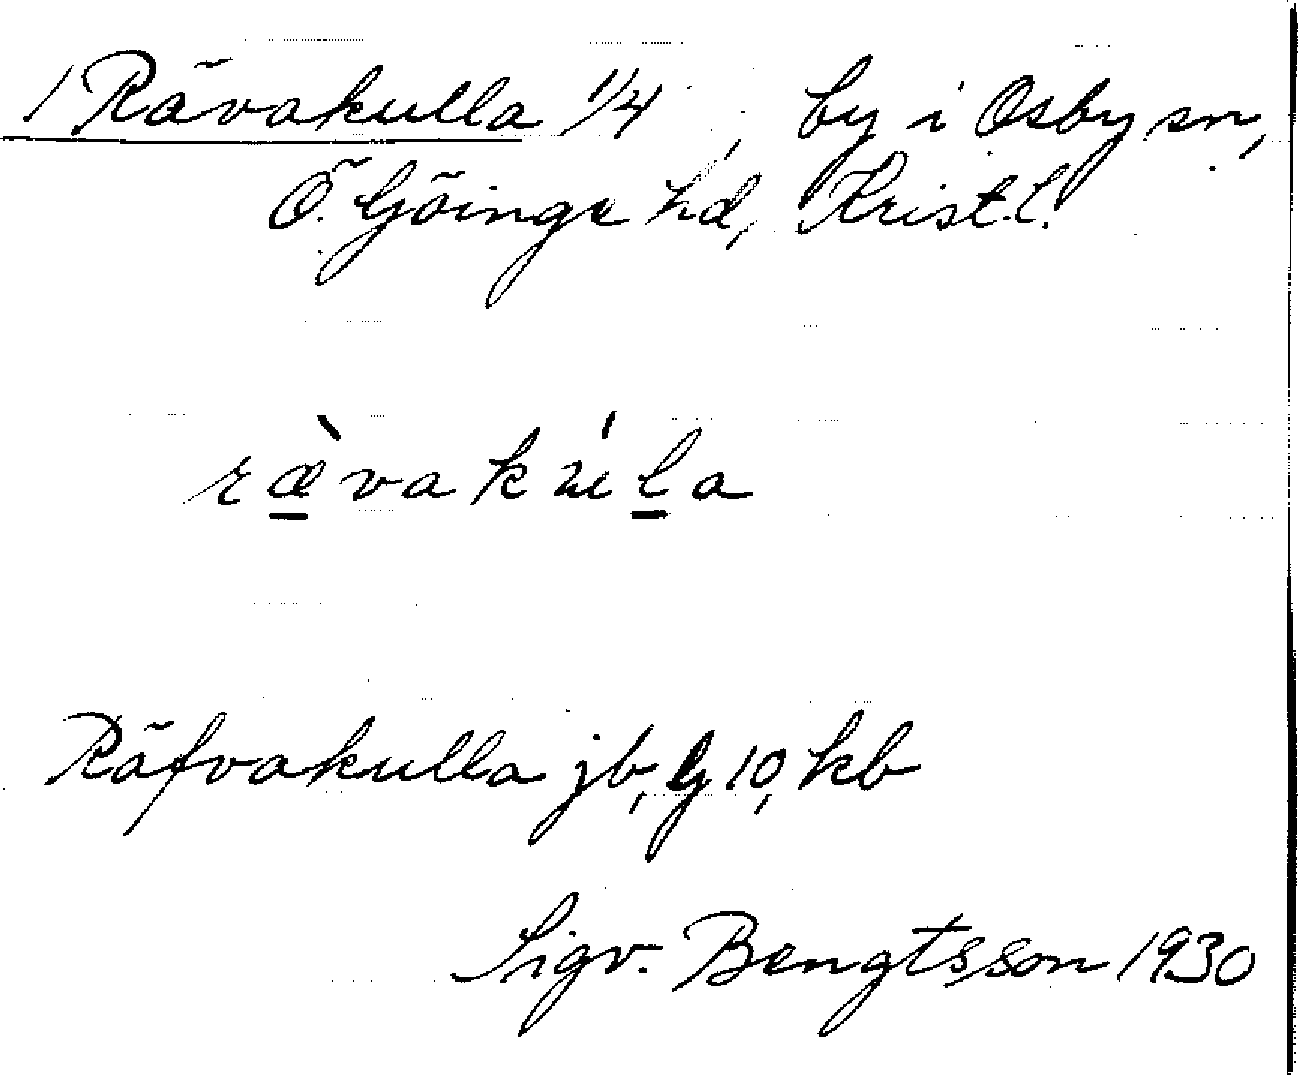 1 Rävakulla 1/4, by i Osby sn,
Ö. Göinge hd, Krist. l.
ræ̀vakúla
Räfvakulla jb, G 10, kb
Sigv. Bengtsson 1930